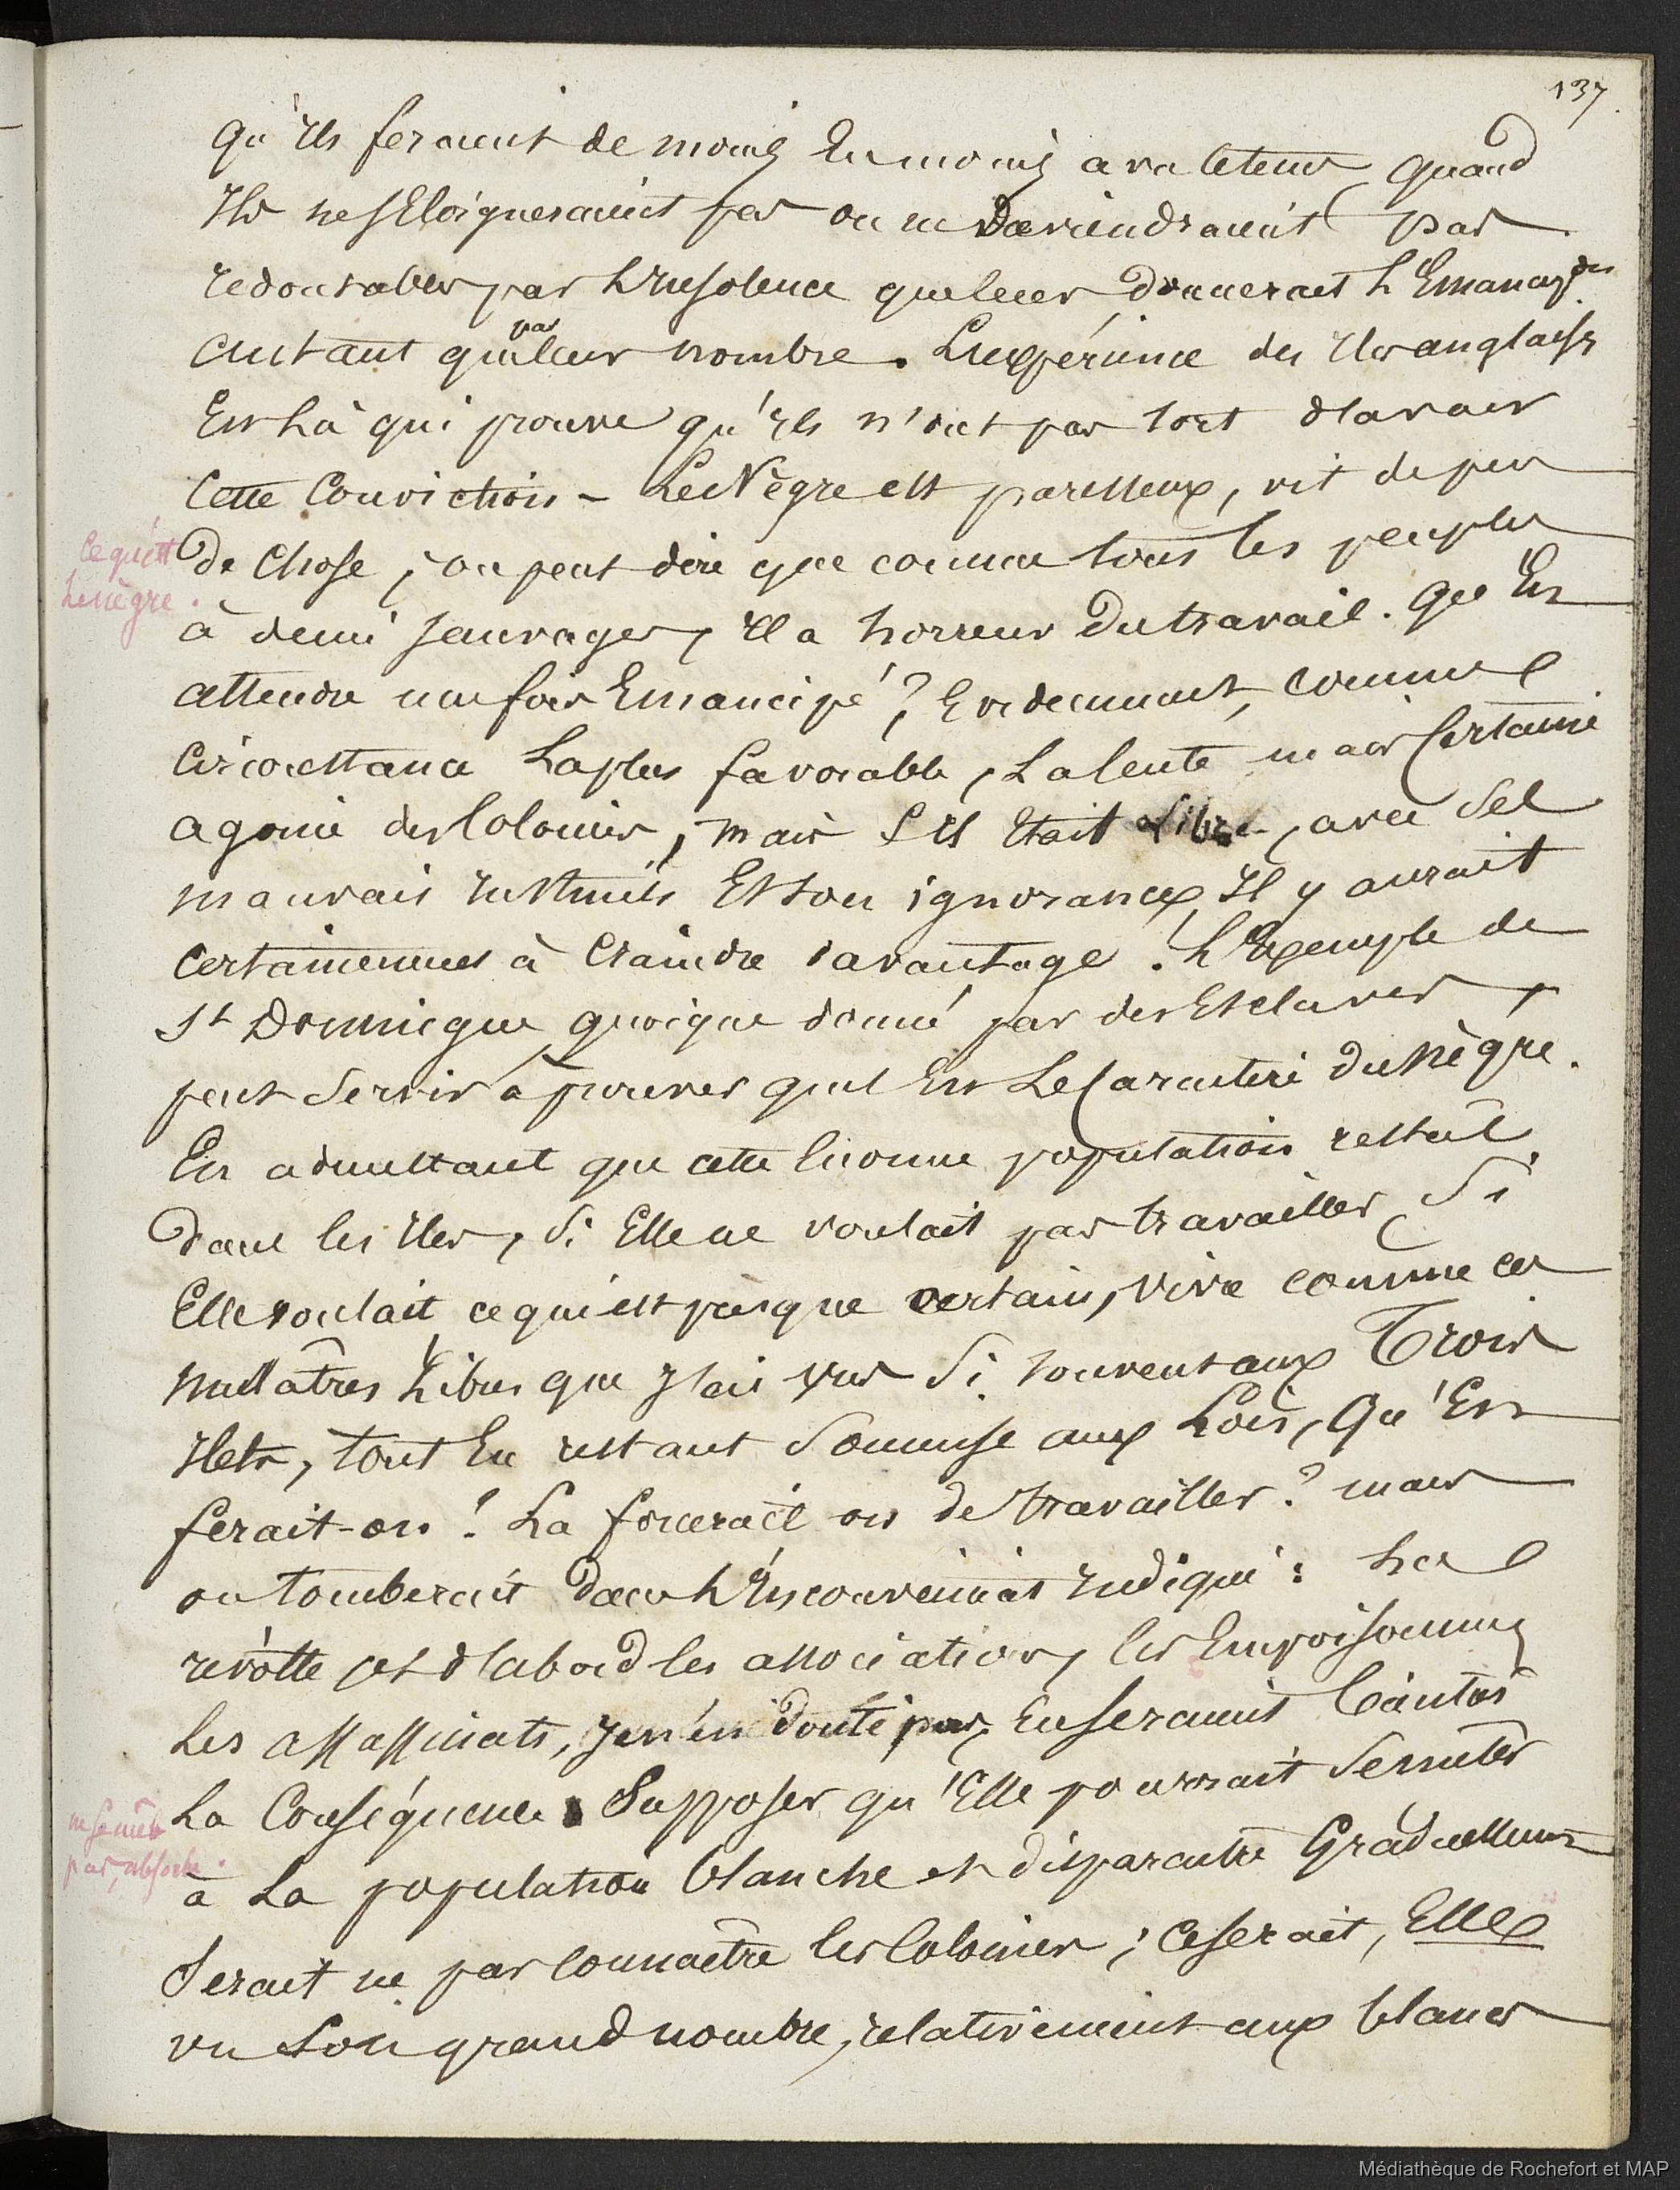 137
qu'ils feraient de moins en moins quand
Ils ne s'Eloigneraient pas ou ne deviendraient pas
redoutables par l'Insolence que leur donnerait l'Emancip.on
autant que par leur nombre. L'expérience des Iles anglaises
Est là qui prouve qu'ils n'ont pas tort d'avoir
Cette Conviction - Le Nègre est paresseux, vit de peu
Ce qu'est
le nègre.
de Chose, on peut dire que comme tous les peuples
à demi sauvages, Il a horreur du travail. Qu'En
attendre une fois Emancipé? Evidemment, comme
Circonstance la plus favorable, La lente mais Certaine
agonie des Colonies, mais s'Il était libre, avec Ses
mauvais instincts Et son ignorance, Il y aurait
certainement à Craindre davantage. L'Exemple de
St Domingue quoique donné par des Esclaves,
peut servir à prouver quel Est le Caractère du nègre.
En admettant que cette Enorme population restât
dans les Iles, Si Elle ne voulait pas travailler, Si
Elle voulait ce qui est presque certain, vivre comme ces
mulâtres Libres que J'ai vus Si souvent aux Trois
Ilets, tout En restant Soumise aux Lois, Qu'En
ferait-on? La forcerait-on de travailler? mais
on tomberait dans l'Inconvénient Indiqué: La
révolte et d'abord les associations, les Empoisonnemts
Les assassinats, Je n'en doute pas, En seraient bientôt
La Conséquence. Supposer qu'Elle pourrait
ne
pas, absorbe.
à La population blanche et disparaitre Graduellement
Serait ne pas Connaitre les Colonies; Ce serait, Elle
vu Son grand nombre, relativement aux blancs
Médiathèque de Rochefort et MAP